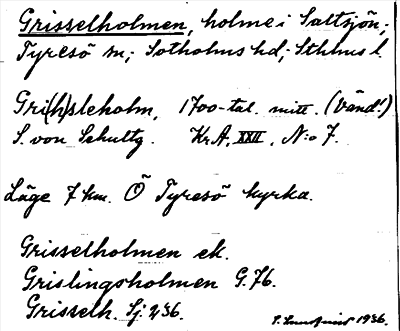 Grisselholmen, holme i Saltsjön;
Tyresö sn; Sotholms hd; Sthlms l.
Gri(h)sleholm, 1700-tal. mitt. (Vänd!)
S. von Schultz. Kr.A. XXII, N:o 7.
Läge 7 km. Ö Tyresö kyrka.
Grisselholmen ek.
Grislingsholmen G. 76.
Grisselh. Sj. 236.
1936.